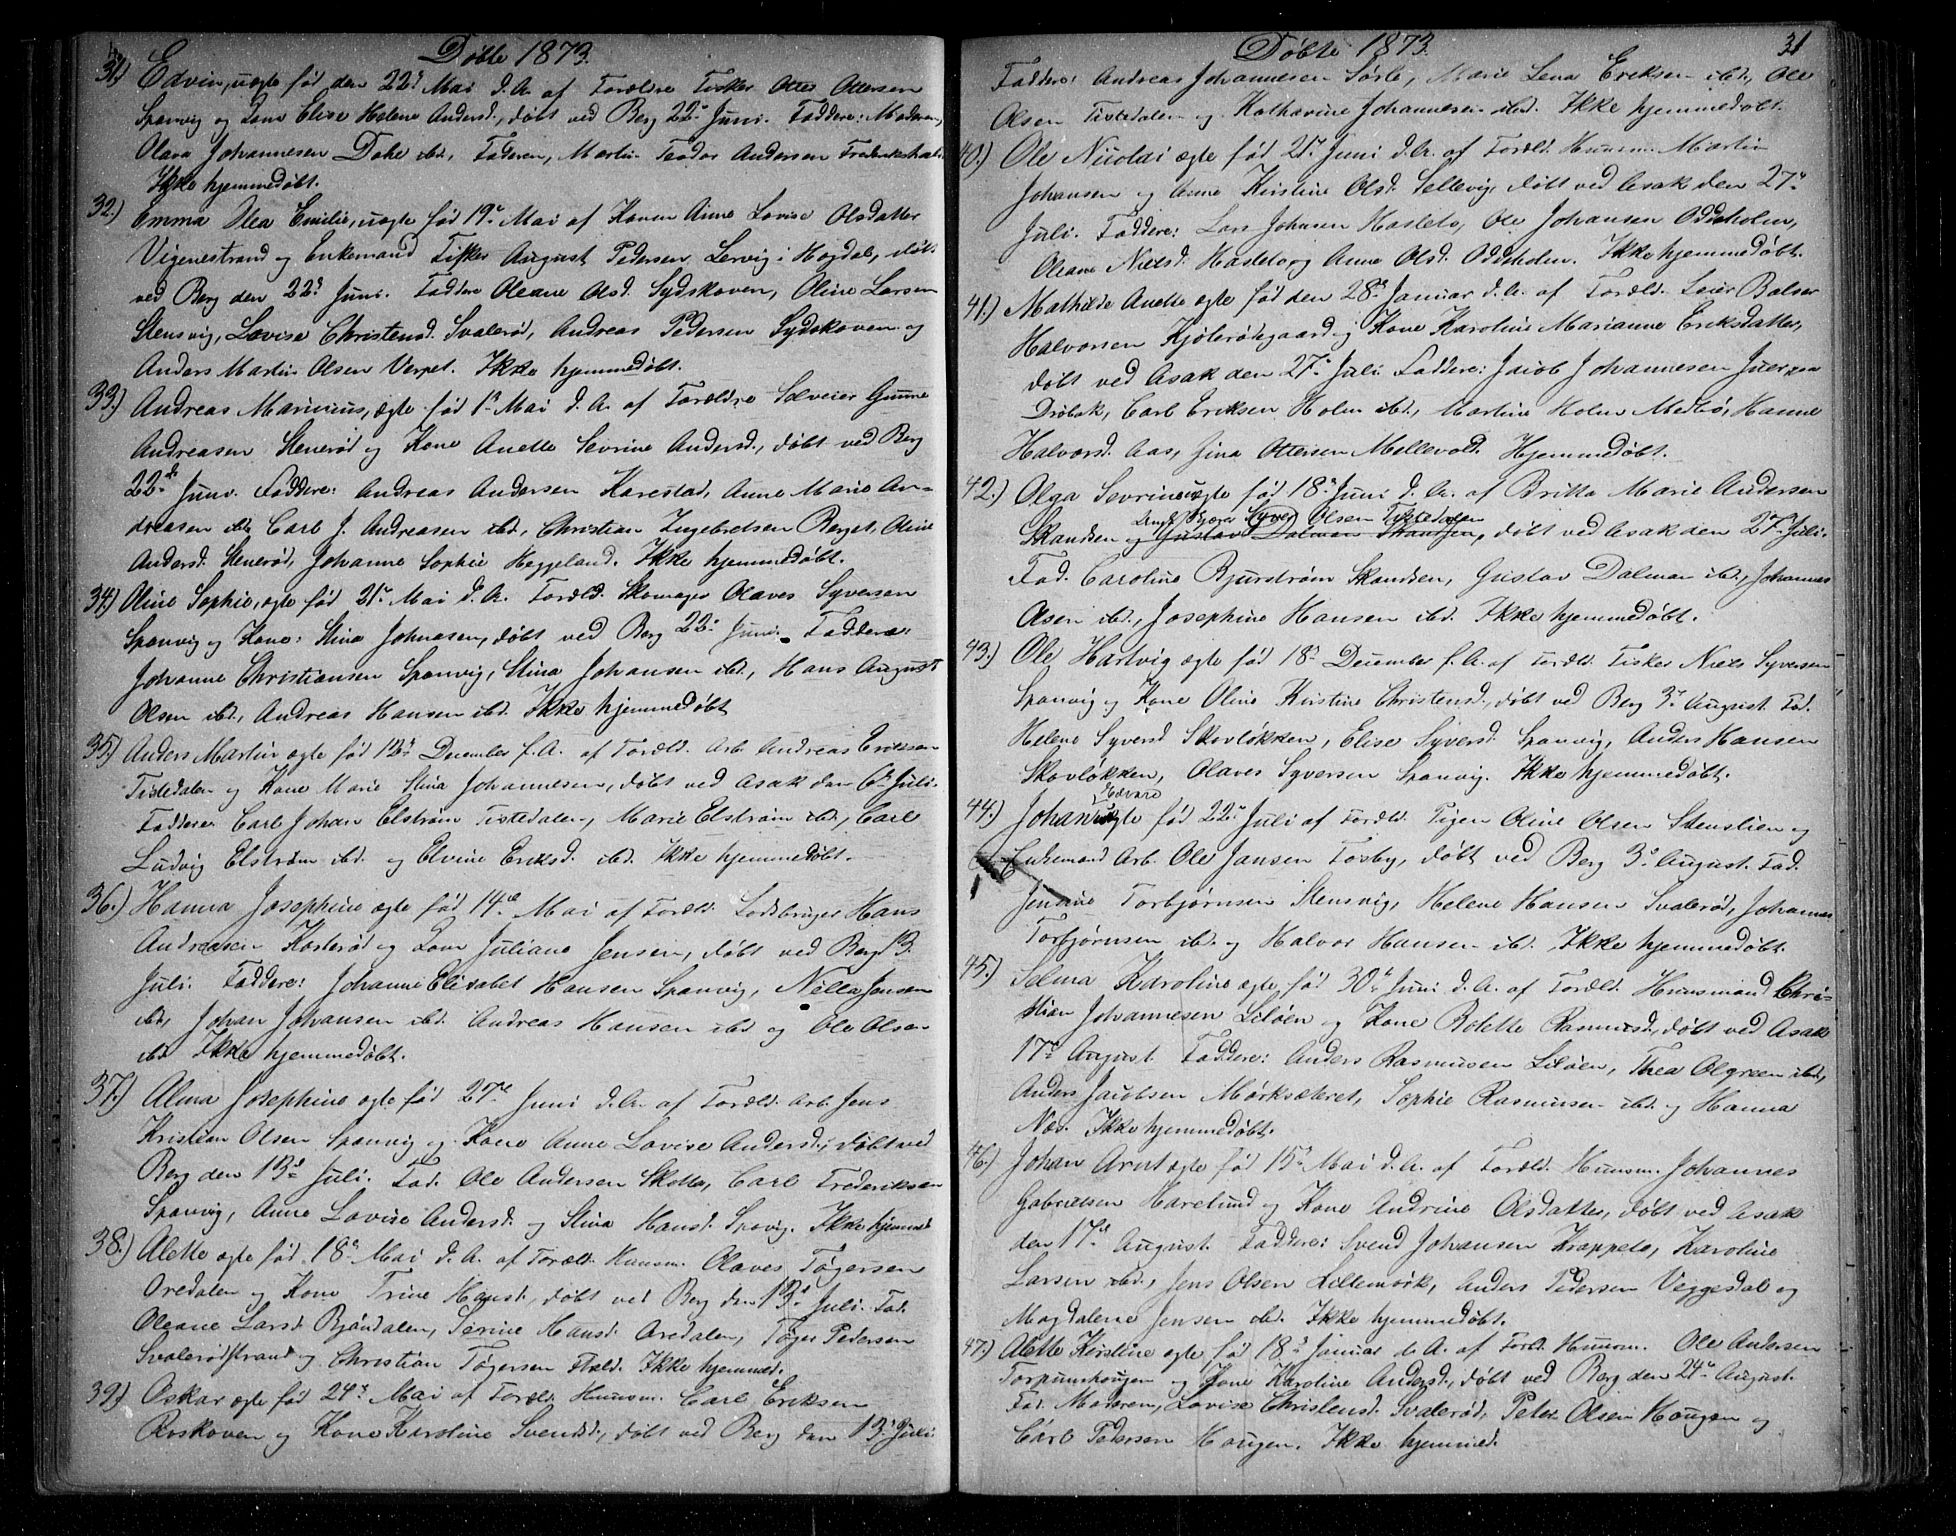 Døbte 1873.
31.) Edvin, uægte født den 22de Mai d. A. af Forældre Fisker Otter Ottersen
Spanvig og Kone Elise Helene Andersd., døbt ved Berg 22de Juni. Faddere: Moderen,
Olava Johannesen Dahe ibd., Faderen, Martin Teodor Andersen Frederikshald
Ikke hjemmedøbt.
32.) Emma Olea Emilie, uægte født 19de Mai af Konen Anne Lovise Olsdatter
Vigenestrand og Enkemand Fisker August Pedersen Lervig i Hogdal, døbt
ved Berg den 22de Juni. Faddere Oleane Olsd. Sydskoven, Oline Larsen
Stensvig, Lovise Christensd. Svalerød, Andreas Pedersen Sydskoven og
Anders Martin Olsen Verpet. Ikke hjemmedøbt.
33.) Andreas Marinius, ægte født 1de Mai d. A. af Forældre Selveier Gunne
Andreasen Stenerød og Kone Anette Sevrine Andersd., døbt ved Berg
22de Juni. Faddere: Andreas Andersen Karestad, Anne Marie An-
dreasen ibd., Carl J. Andreasen ibd., Christian Ingebretsen Berget, Oline
Andersd. Stenerød, Johanne Sophie Heggeland. Ikke hjemmedøbt.
34.) Oline Sophie, ægte født 21de Mai d. A. Foræld. Skomager Olaves Syversen
Spanvig og Kone: Stina Johnasen, døbt ved Berg 22de Juni. Faddere:
Johanne Christiansen Spanvig, Stina Johansen ibd., Hans August
Olsen ibd., Andreas Hansen ibd. Ikke hjemmedøbt
35.) Anders Martin ægte født 12te December f. A. af Foræld. Arb. Andreas Eriksen
Tistedalen og Kone Marie Stina Johannesen, døbt ved Asak den 6te Juli.
Faddere Carl Johan Elstrøm Tistedalen, Marie Elstrøm ibd., Carl
Ludvig Elstrøm ibd. og Elvine Eriksd. ibd. Ikke hjemmedøbt.
36.) Hanna Josephine ægte født 14de Mai af Foræld. Lodsbruger Hans
Andreasen Kosterød og Kone Juliane Jensen, døbt ved Berg 13
Juli. Faddere: Johanne Elisabet Hansen Spanvig, Nilla Jensen
ibd., Johan Johansen ibd. Andreas Hansen ibd og Ole Olsen
ibd Ikke hjemmedøbt.
37.) Alma Josephine ægte født 27de Juni d. A. af Foræld. Arb. Jens
Kristian Olsen Spanvig og Kone Anne Lovise Andersd., døbt ved
Berg den 13de Juli. Fad. Ole Andersen Sletto, Carl Frederiksen
Spanvig, Anne Lovise Andersd. og Stina Hansd. Spavig. Ikke hjemmed
38.) Alette ægte født 18de Mai d. A. af Foræld. Huusm. Olaves Tøgersen
Oredalen og Kone Trine Hansd., døbt ved Berg den 13de Juli. Fad.
Oleane Larsd. Bjøndalen, Serine Hansd. Oredalen, Tøger Pedersen
Svalerødstrand og Christian Tøgersen Hald. Ikke hjemmed.
39.) Oskar ægte født 24de Mai af Foræld. Huusm. Carl Eriksen
Rorskoven og Kone Karoline Svendsd., døbt ved Berg den 13de Juli.
Døbte 1873.
31
Faddere: Andreas Johannesen Sørli, Marie Lena Eriksen ibd., Ole
Olsen Tistedalen og Katharine Johannesen ibd. Ikke hjemmedøbt.
40.) Ole Nicolai ægte født 21de Juni d. A. af Foræld. Huusm. Martin
Johansen og Anne Kirstine Olsd. Sellevig, døbt ved Asak den 27de
Juli. Faddere: Lars Johansen Hasleto, Ole Johansen Oddeholen,
Oleane Nielsd. Hasleto og Anne Olsd. Oddeholen. Ikke hjemmedøbt.
41.) Mathilde Anette ægte født den 28de Januar d. A. af Foræld. Leier Balser
Halvorsen Kjølerødegaard og Kone Karoline Marianne Eriksdatter,
døbt ved Asak den 27de Juli. Faddere: Jacob Johannesen Juer paa
Drøbak, Carl Eriksen Holm ibd., Martine Holm Medbø, Hanne
Halvorsd. Aas, Jina Ottersen Mellevold. Hjemmedøbt.
42.) Olga Sevrine uægte født 18de Juni d. A. af Britta Marie Andersen
Syver Olsen Tistedalen
Skandsen og Gustav Dalman Skansen, døbt ved Asak den 27de Juli.
Fad. Caroline Bjurstrøm Skandsen, Gustav Dalman ibd., Johannes
Olsen ibd., Josephine Hansen ibd. Ikke hjemmedøbt.
43.) Ole Hartvig ægte født 18de December f. A. af Foræld. Fisker Niels Syversen
Spanvig og Kone Oline Kirstine Christensd., døbt ved Berg 3de August. Fad.
Helene Syversd. Skovløkken, Elise Syversd. Spanvig, Anders Hansen
Skovløkken, Olaves Syversen Spanvig. Ikke hjemmedøbt.
Edvard
44.) Johan uægte født 22de Juli af Foræld. Pigen Oline Olsen Stenslien og
Enkemand Arb. Ole Jansen Fosby, døbt ved Berg 3de August. Fad.
Jensine Torbjørnsen Stensvig, Helene Hansen Svalerød, Johannes
Torbjørnsen ibd. og Halvor Hansen ibd. Ikke hjemmedøbt.
45.) Selma Karoline ægte født 30de Juni d. A. af Foræld. Huusmand Chri-
stian Johannesen Liløen og Kone Bolette Rasmusd., døbt ved Asak
17de August. Faddere: Anders Rasmusen Liløen, Thea Olgreen ibd.,
Anders Jacobsen Mørksæteret, Sophie Rasmusen ibd. og Hanna
Næs. Ikke hjemmedøbt.
46.) Johan Arnt ægte født 15de Mai d. A. af Foræld. Huusm. Johannes
Gabrielsen Harelund og Kone Andrine Olsdatter, døbt ved Asak
den 17de August. Faddere: Svend Johansen Knappelo, Karoline
Larsen ibd., Jens Olsen Lillemørk, Anders Pedersen Veggedal og
Magdalene Jensen ibd. Ikke hjemmedøbt.
47.) Alette Kirstine ægte født 18de Januar d. A. af Foræld. Huusm. Ole Andersen
Torpumhougen og Kone Karoline Andersd., døbt ved Berg den 24de August.
Fad. Moderen, Lovise Christensd. Svalerød, Peter Olsen Hougen og
Carl Pedersen Haugen. Ikke hjemmed.